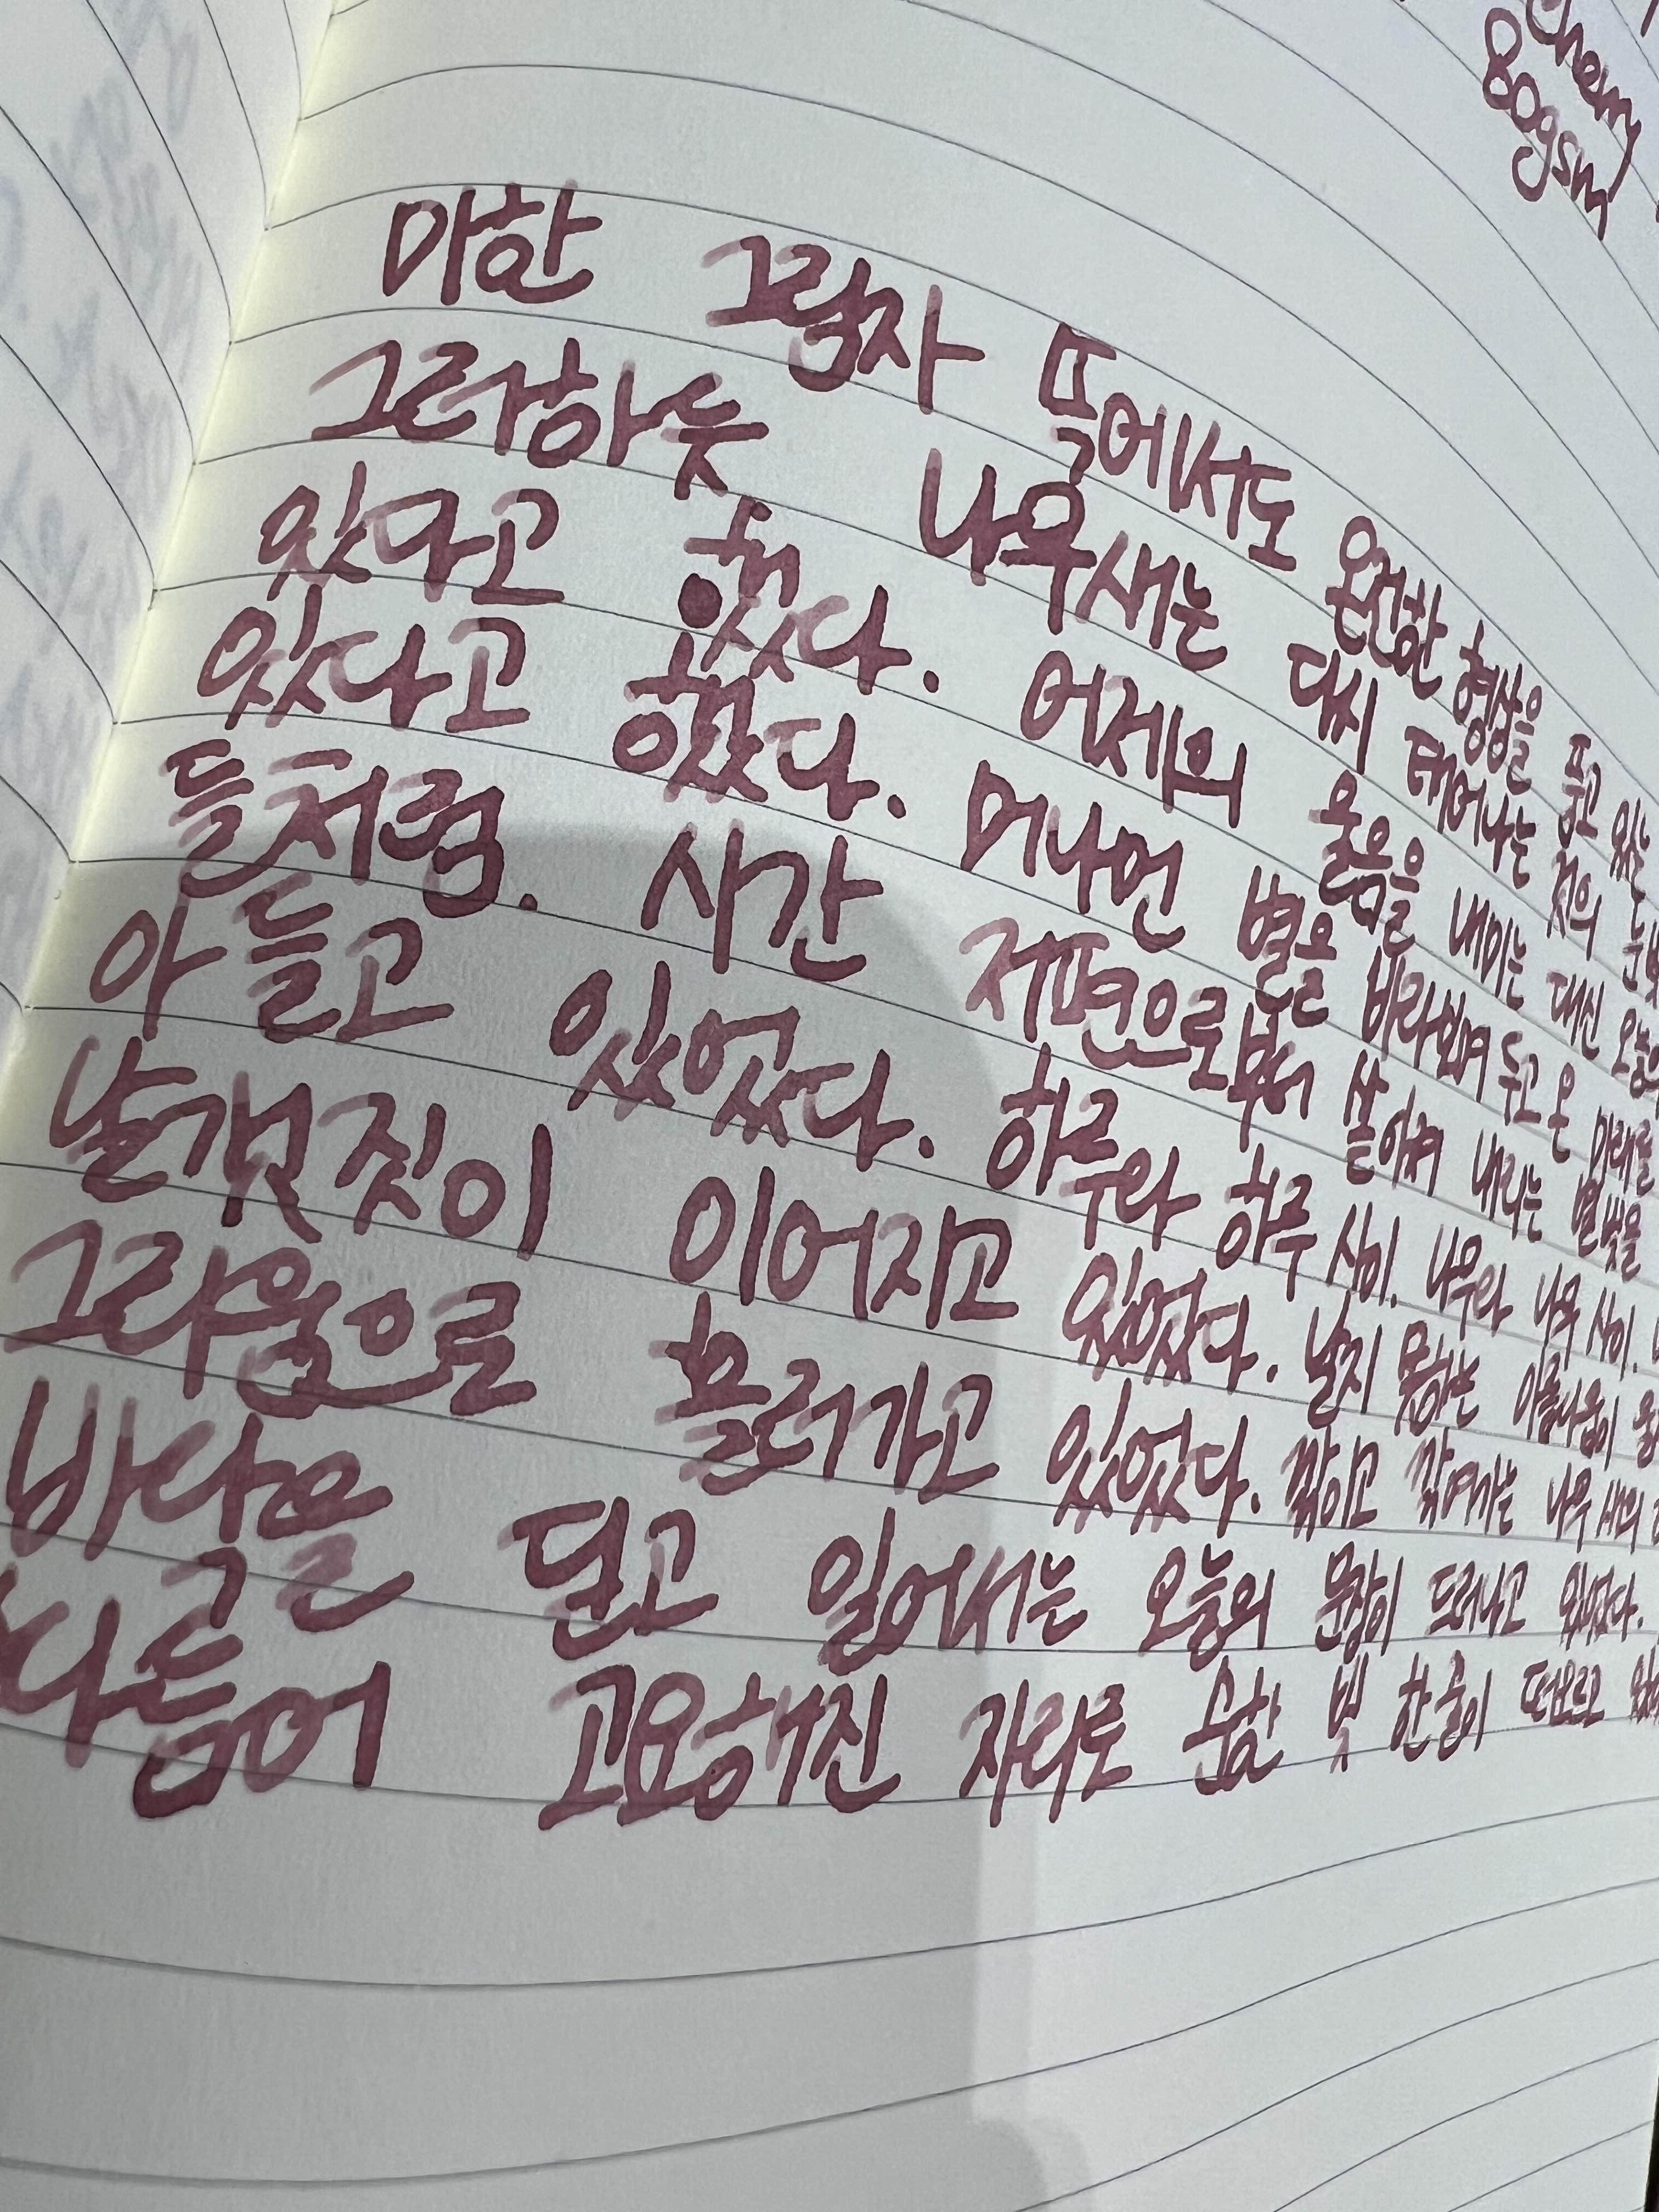 Chem
80gsm
마한 그림자 뚝에서도 온전한 형상을 품고 있는
그러하듯 나무새는 다시 태어나는 것의 눈빛
있다고 했다. 어제의 울음을 내미는 대신 오늘의
있다고 했다. 머나먼 별을 바라보며 두고 온 미래를
들처럼. 시간 저편으로부터 쏟아져 내리는 별빛을
아 들고 있었다. 하루와 하루 사이. 나무와 나무 사이.
날갯짓이 이어지고 있었다. 날지 못하는 아름다움이
그리움으로 흘러가고 있었다. 깎이고 깎여가는 나무새의
바닥을 딛고 일어서는 오늘의 문장이 드러나고 있었다.
다듬어 고요해진 자리로 무한 빛 한 줄이 떠오르고